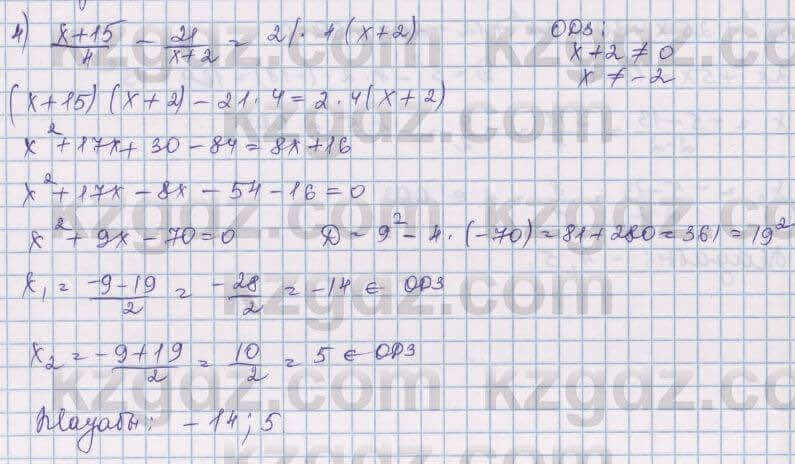 4) (x+15)/4 − 21/(x+2) = 2 |· 4(x+2) ОДЗ:
x+2 ≠ 0
x ≠ −2
(x+15)(x+2) − 21·4 = 2·4(x+2)
x² + 17x + 30 − 84 = 8x + 16
x² + 17x − 8x − 54 − 16 = 0
x² + 9x − 70 = 0 D = 9² − 4·(−70) = 81 + 280 = 361 = 19²
x₁ = (−9−19)/2 = −28/2 = −14 ∈ ОДЗ
x₂ = (−9+19)/2 = 10/2 = 5 ∈ ОДЗ
Жауабы: −14; 5
kzgdz.com
kzgdz.com
kzgdz.com
kzgdz.com
kzgdz.com